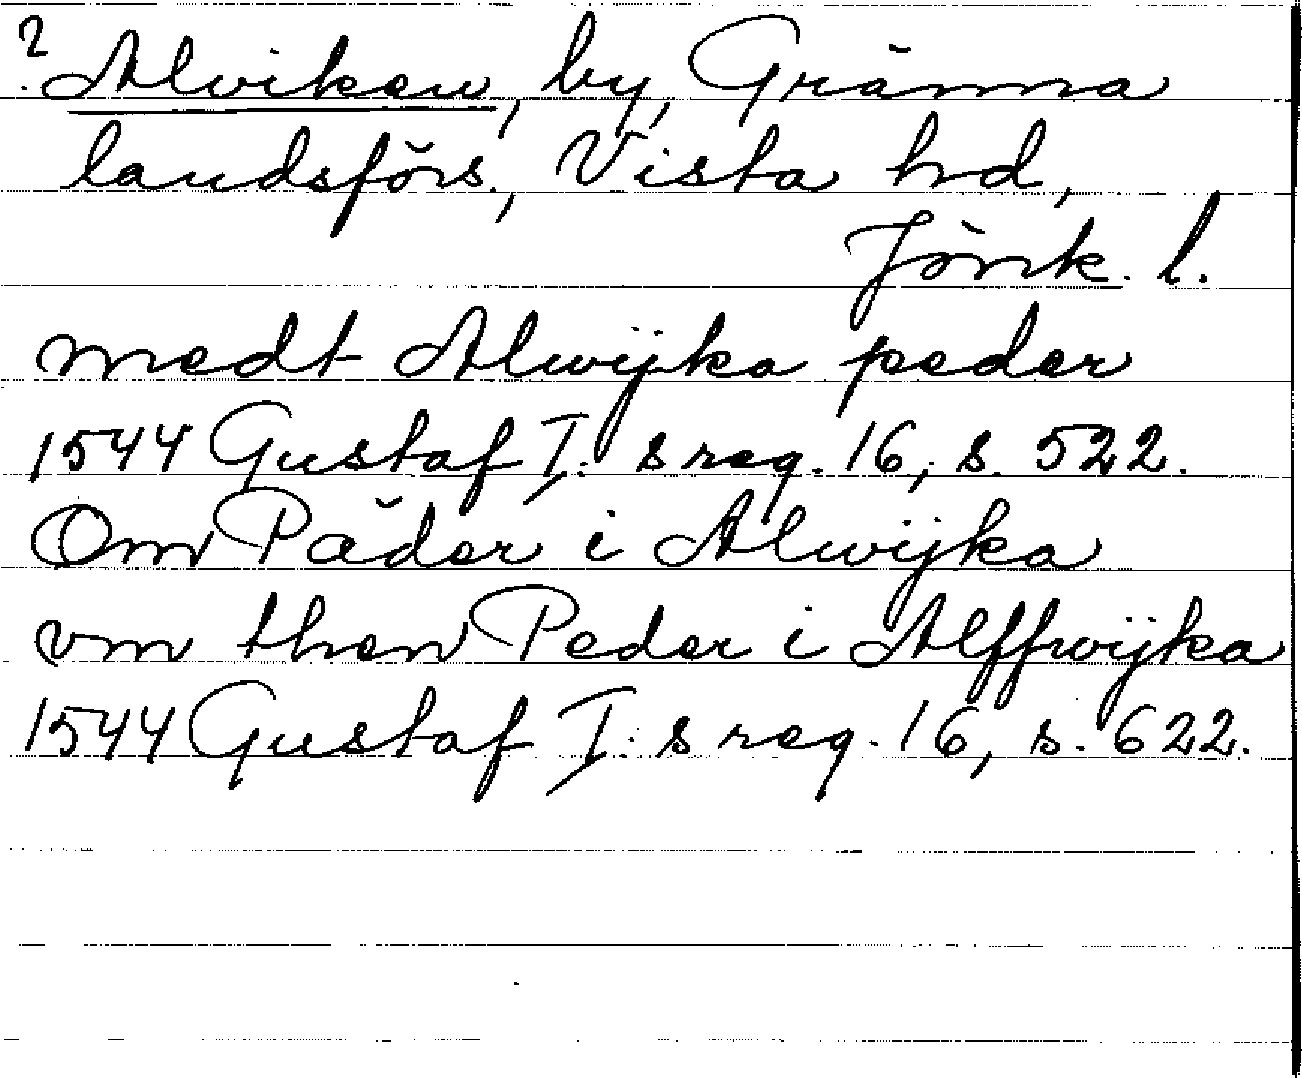 ? Alviken, by, Gränna
landsförs., Vista hd,
Jönk. l.
medt Alwijka peder
1544 Gustaf I:s reg. 16, s. 522.
Om Päder i Alwijka
vm then Peder i Alffwijka
1544 Gustaf I:s reg. 16, s. 622.